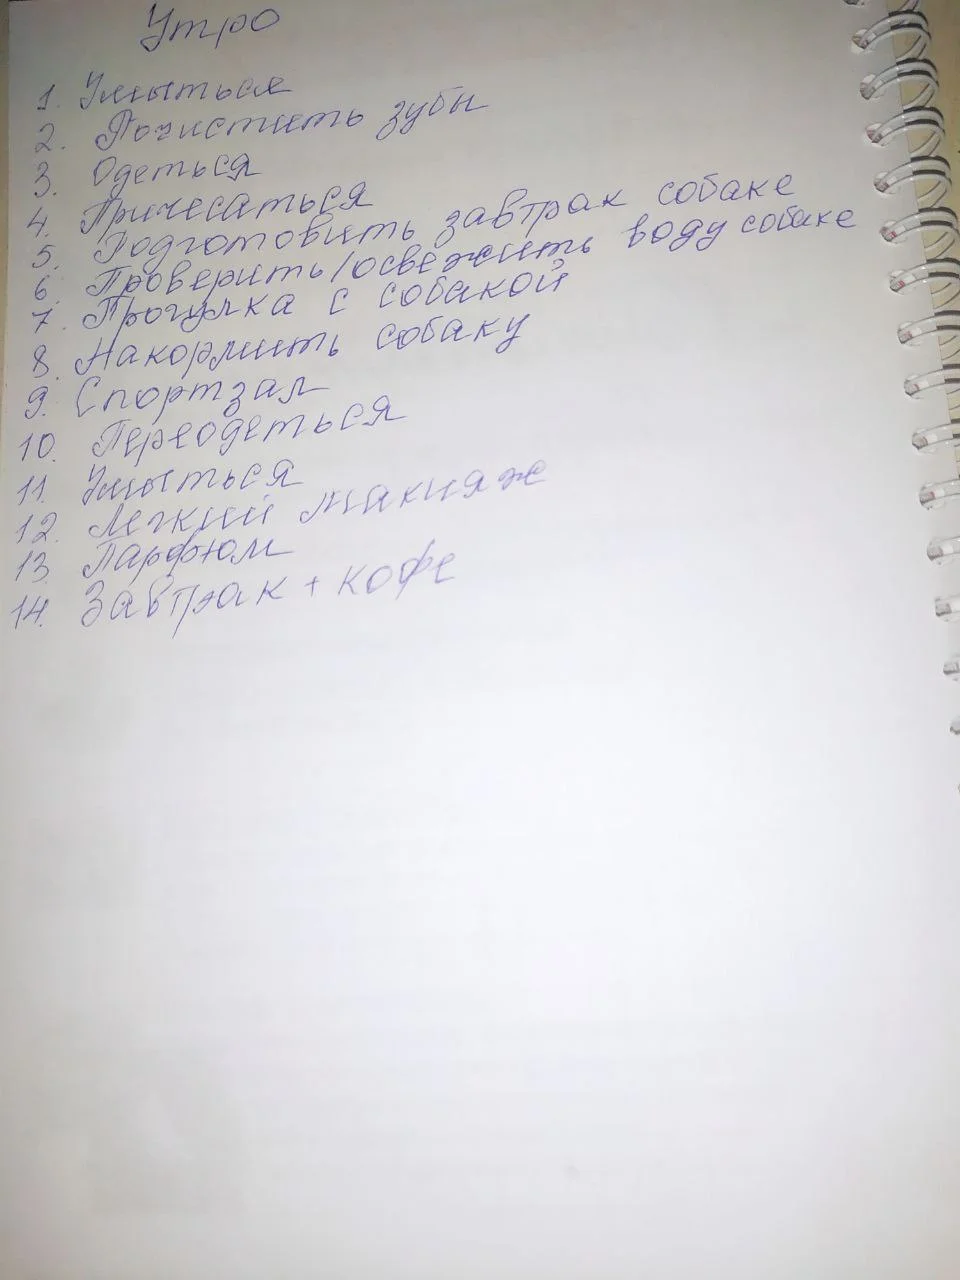 Утро
1. Умыться
2. Почистить зубы
3. Одеться
4. Причесаться
5. Подготовить завтрак собаке
6. Проверить/освежить воду собаке
7. Прогулка с собакой
8. Накормить собаку
9. Спортзал
10. Переодеться
11. Умыться
12. Легкий макияж
13. Парфюм
14. Завтрак + кофе